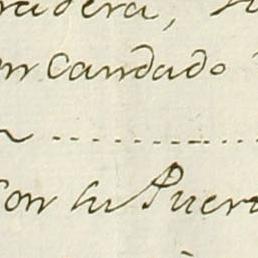 radera,
on Candado
con su Puert